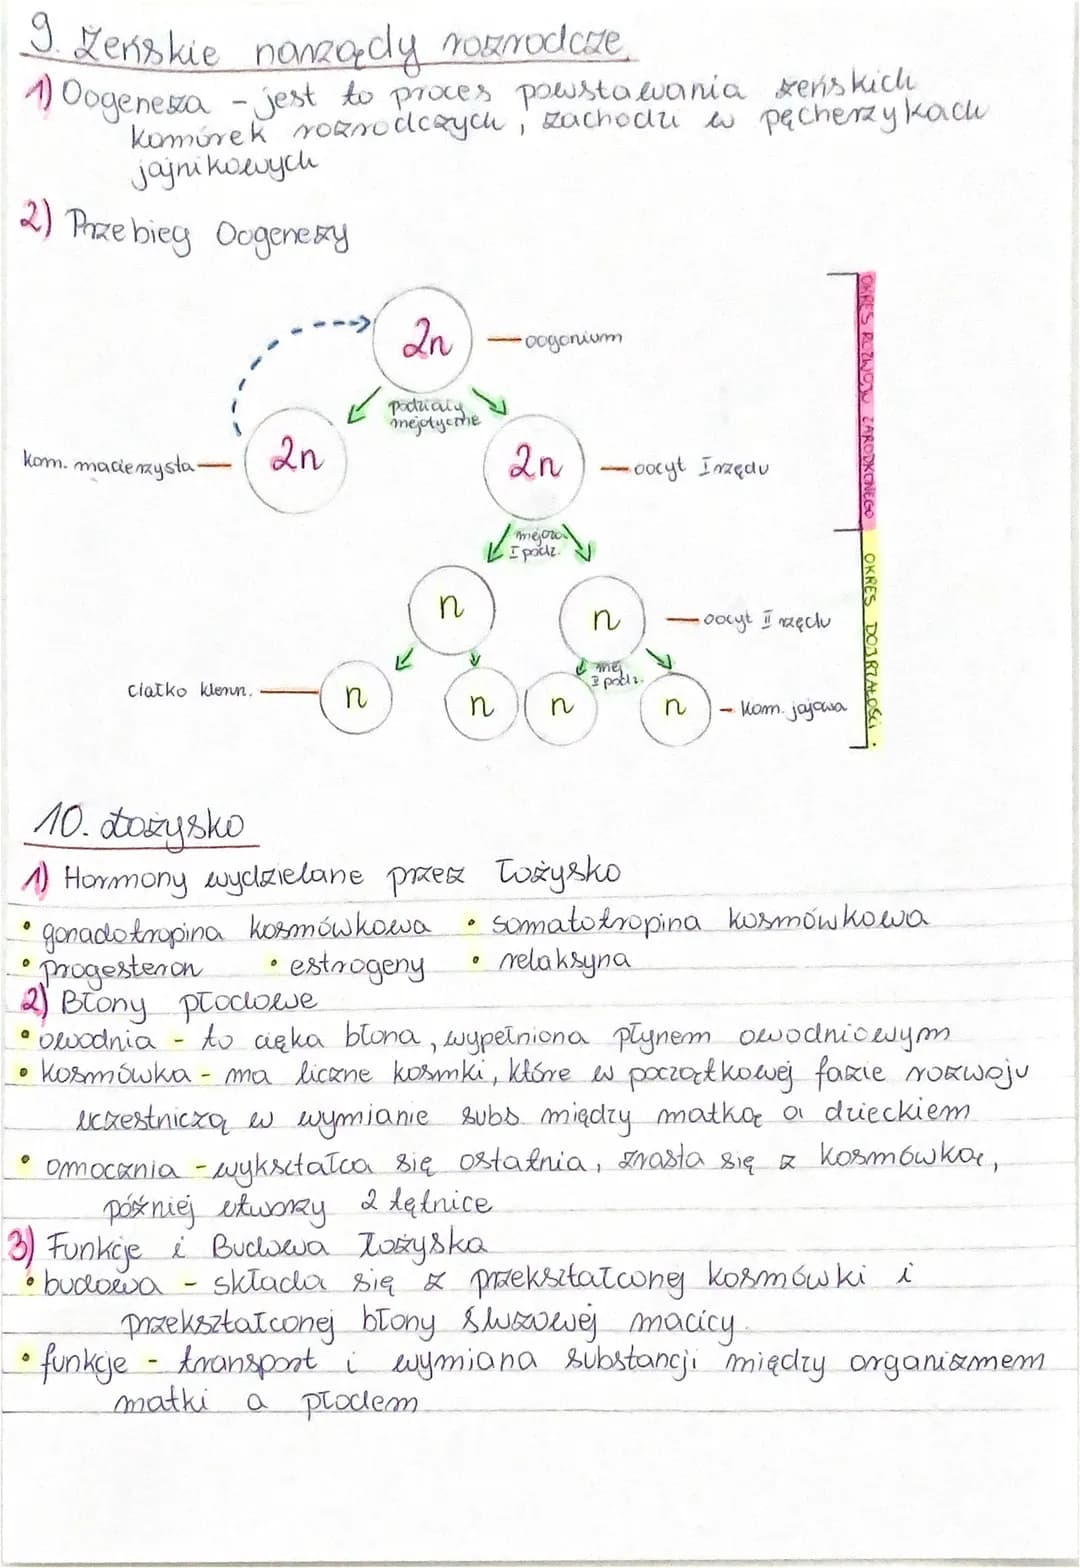 9. Żeńskie narządy rozrodcze
1) Oogeneza - jest to proces powstawania żeńskich
komórek rozrodczych, zachodzi w pęcherzykach
jajnikowych
2) Przebieg Oogenezy
2n
oogonium
podziały
mejotyczne
kom. macierzysta
2n
2n
oocyt I rzędu
mejoza
I podz.
n
n
oocyt II rzędu
mej.
podz.
ciałko kierun.
n
n
n
n
kom. jajowa
OKRES ROZWOJU ZARODKOWEGO
OKRES DOJRZAŁOŚCI.
10. Łożysko
1) Hormony wydzielane przez łożysko
• gonadotropina kosmówkowa • somatotropina kosmówkowa
• progesteron • estrogeny • relaksyna
2) Błony płodowe
• owodnia - to cięka błona, wypełniona płynem owodniowym
• kosmówka - ma liczne kosmki, które w początkowej fazie rozwoju
uczestniczą w wymianie subs. między matką a dzieckiem
• omocznia - wykształca się ostatnia, zrasta się z kosmówką,
później utworzy 2 tętnice
3) Funkcje i Budowa łożyska
• budowa - składa się z przekształconej kosmówki i
przekształconej błony śluzowej macicy.
• funkcje - transport i wymiana substancji między organizmem
matki a płodem